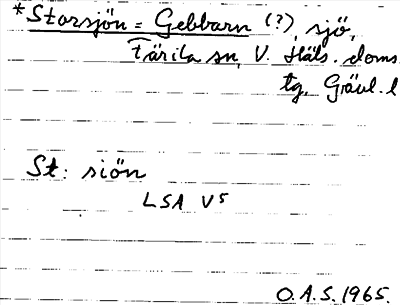 *Storsjön = Gebbarn (?), sjö,
Färila sn, V. Häls. doms.
tg, Grävl. l
St: siön
LSA V5
O.A.S. 1965.